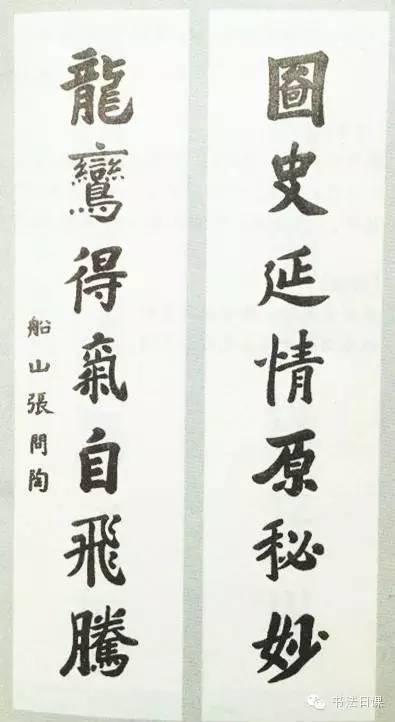 圖史延情原秘妙
龍鸞得氣自飛騰
船山張問陶
书法日课